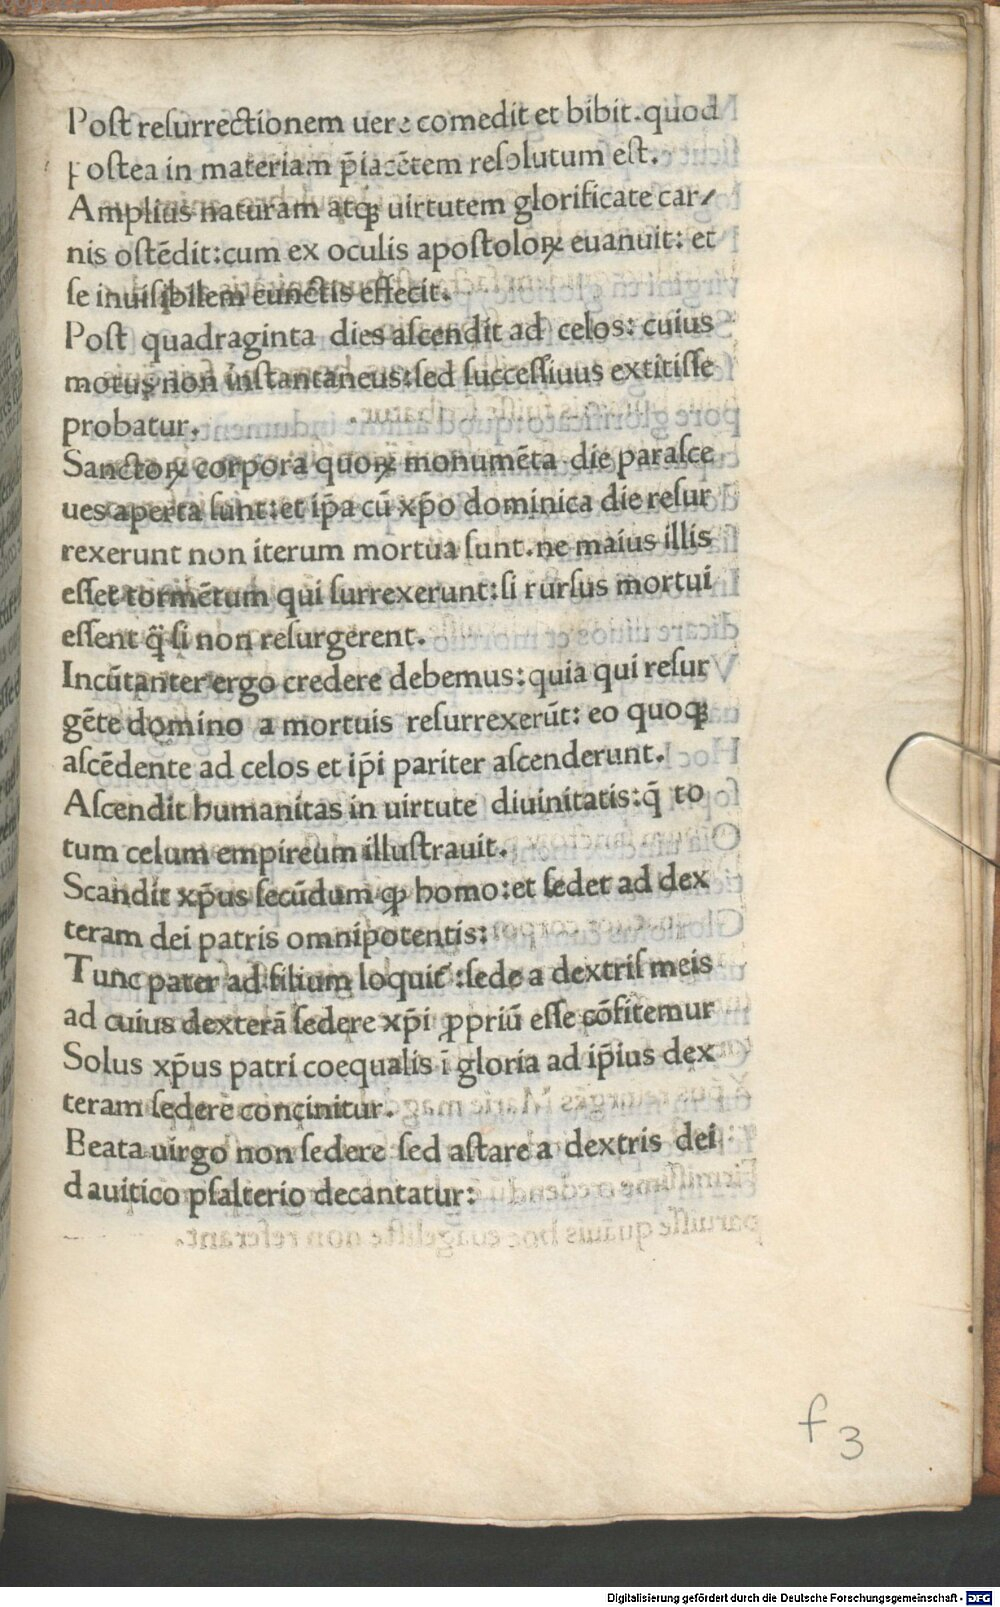 Poſt reſurrectionem uere comedit et bibit.quod
poſtea in materiam p̄iacētem reſolutum eſt.
Amplius naturam atqꝫ uirtutem glorificate car⸗
nis oſtēdit:cum ex oculis apoſtoloꝝ euanuit: et
ſe inuiſibilem cunctis effecit.
Poſt quadraginta dies aſcendit ad celos: cuius
motus non inſtantaneus:ſed ſucceſſiuus extitiſſe
probatur.
Sanctoꝝ corpora quoꝝ monumēta die paraſce
ues aperta ſunt:et ip̄a cū xp̄o dominica die reſur
rexerunt non iterum mortua ſunt.ne maius illis
eſſet tormētum qui ſurrexerunt:ſi rurſus mortui
eſſent q̈ ſi non reſurgerent.
Incūtanter ergo credere debemus:quia qui reſur
gēte domino a mortuis reſurrexerūt: eo quoqꝫ
aſcēdente ad celos et ip̄i pariter aſcenderunt.
Aſcendit humanitas in uirtute diuinitatis:q̄ to
tum celum empireum illuſtrauit.
Scandit xp̄us ſecūdum ꝙ homo:et ſedet ad dex
teram dei patris omnipotentis:
Tunc pater ad filium loquit᷑ :ſede a dextriſ meis
ad cuius dexterā ſedere xp̄i ꝓpriū eſſe cōfitemur
Solus xp̄us patri coequalis ī gloria ad ip̄ius dex
teram ſedere concinitur.
Beata uirgo non ſedere ſed aſtare a dextris dei
dauitico pſalterio decantatur:
f 3
Digitalisierung gefördert durch die Deutsche Forschungsgemeinschaft - DFG